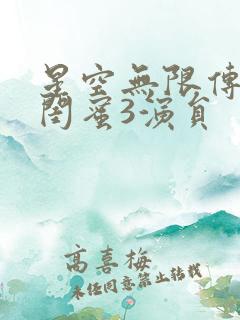 星空無限傳
閨蜜3-演員
高喜梅
未经同意禁止转载